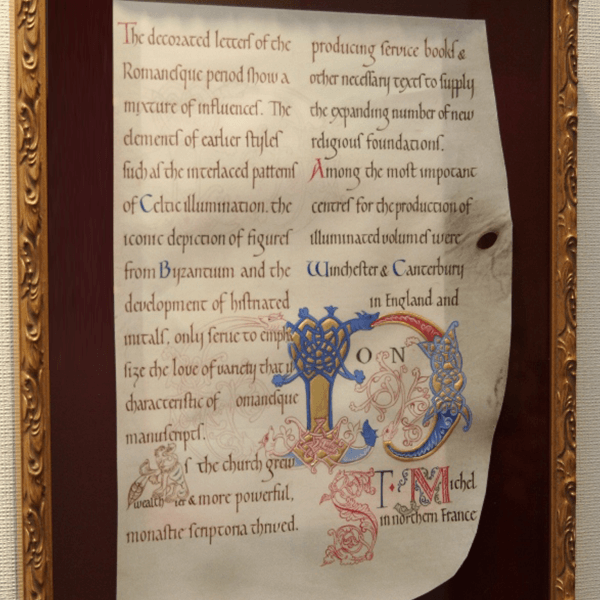 The decorated letters of the
Romanesque period show a
mixture of influences. The
elements of earlier styles
such as the interlaced patterns
of Celtic illumination, the
iconic depiction of figures
from Byzantium and the
development of histriated
initals, only serve to emph
size the love of variety that is
characteristic of omanesque
manuscripts.
s the church grew
wealthier & more powerful,
monastic scriptoria thrived.
producing service books &
other necessary texts to supply
the expanding number of new
religious foundations.
Among the most impotant
centres for the production of
illuminated volumes were
Winchester & Canterbury
in England and
ON
ST. Michel
in northern France